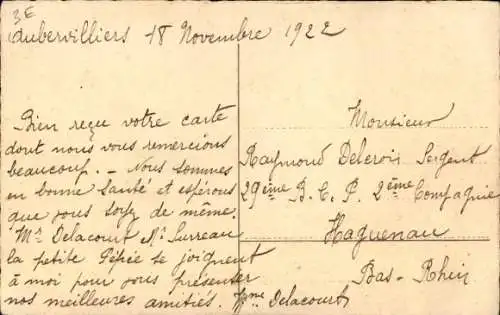 3E
Aubervilliers 18 Novembre 1922
Bien reçu votre carte
dont nous vous remercions
beaucoup. - Nous sommes
en bonne santé et espérons
que vous soyez de même.
Mr Delacourt Mr Surreau
la petite Pépée se joignent
à moi pour vous présenter
nos meilleures amitiés. Mme Delacourt
Monsieur
Raymond Delcroix Sergent
29ème B. C. P. 2ème Compagnie
Haguenau
Bas-Rhin